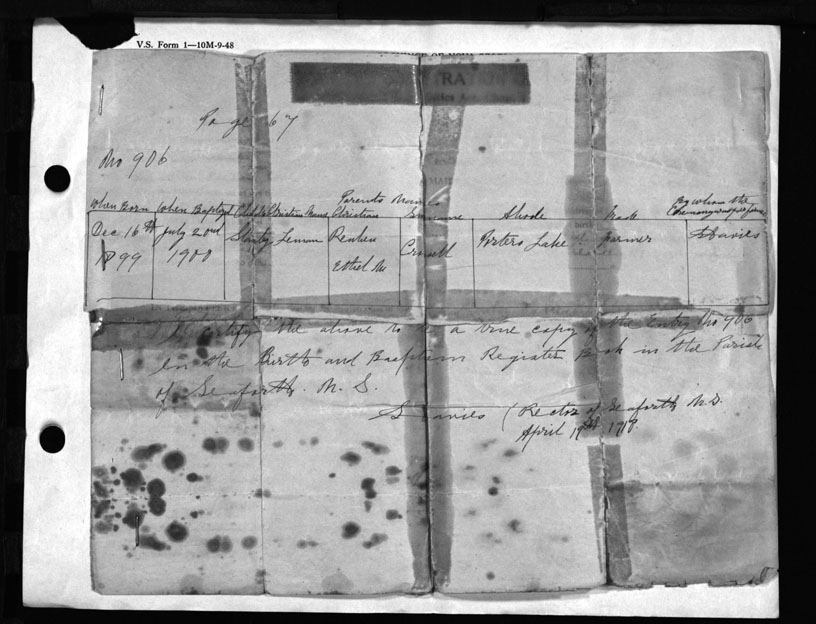 V.S. Form 1—10M-9-48
Page 67
No 906
When Born When Baptized Child's Christian Name Parents Names Christian Surname Abode Trade By whom the Ceremony was performed
Dec 16th 1899 July 22nd 1900 Leman Reuben Ethel M Porters Lake Farmer S Davies
I certify the above to be a true copy of the Entry No 906
in the Birth and Baptism Register Book in the Parish
of Seaforth. N. S.
S Davies (Rector of Seaforth N.S.
April 19th